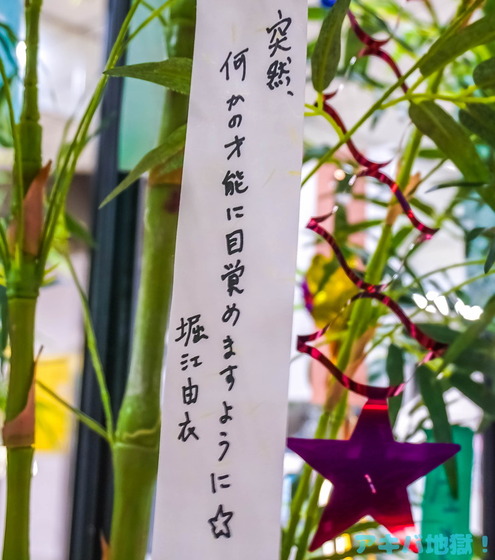 突然、
何かの才能に目覚めますように☆
堀江由衣
アキバ地獄！